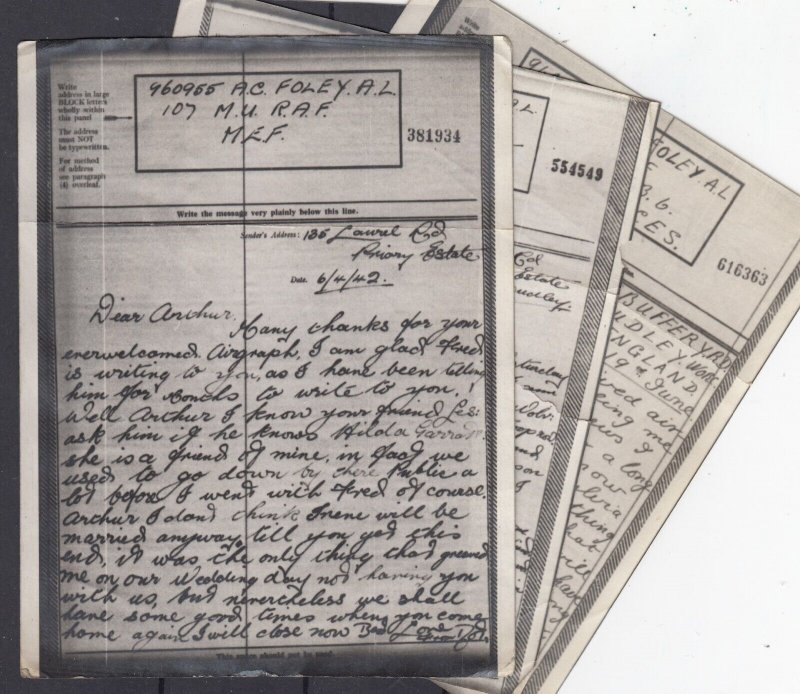 Write
address in large
BLOCK letters
wholly within
this panel
The address
must NOT
be typewritten.
For method
of address
see paragraph
(4) overleaf.
960955 A.C. FOLEY. A.L.
107 M.U. R.A.F.
M.E.F.
381934
Write the message very plainly below this line.
Sender's Address: 135 Laurel Rd
Priory Estate
Date. 6/4/42.
Dear Arthur.
Many thanks for your
everwelcomed Airgraph, I am glad Fred
is writing to you, as I have been telling
him for Months to write to you.
Well Arthur I know your friend Les:
ask him if he knows Hilda
she is a friend of mine, in fact we
used to go down by there Public a
lot before I went with Fred of course.
Arthur I dont think Irene will be
married anyway till you get this
end, it was the only thing that greived
me on our Wedding day not having you
with us, but nevertheless we shall
have some good times when you come
home again, I will close now Best Love
This space should not be used.
A.L.
554549
Rd
Estate
Dudley
and
FOLEY. A.L
616363
BUFFERY. RD
DUDLEY. WORC
ENGLAND.
19th June
a long
thing
that
will